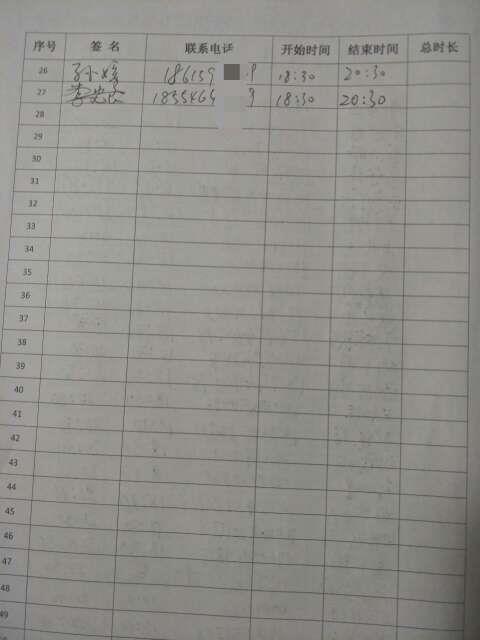 序号 签名 联系电话 开始时间 结束时间 总时长
26 孙媛 186159 9 18:30 20:30
27 1835465 9 18:30 20:30
28
29
30
31
32
33
34
35
36
37
38
39
40
41
42
43
44
45
46
47
48
49